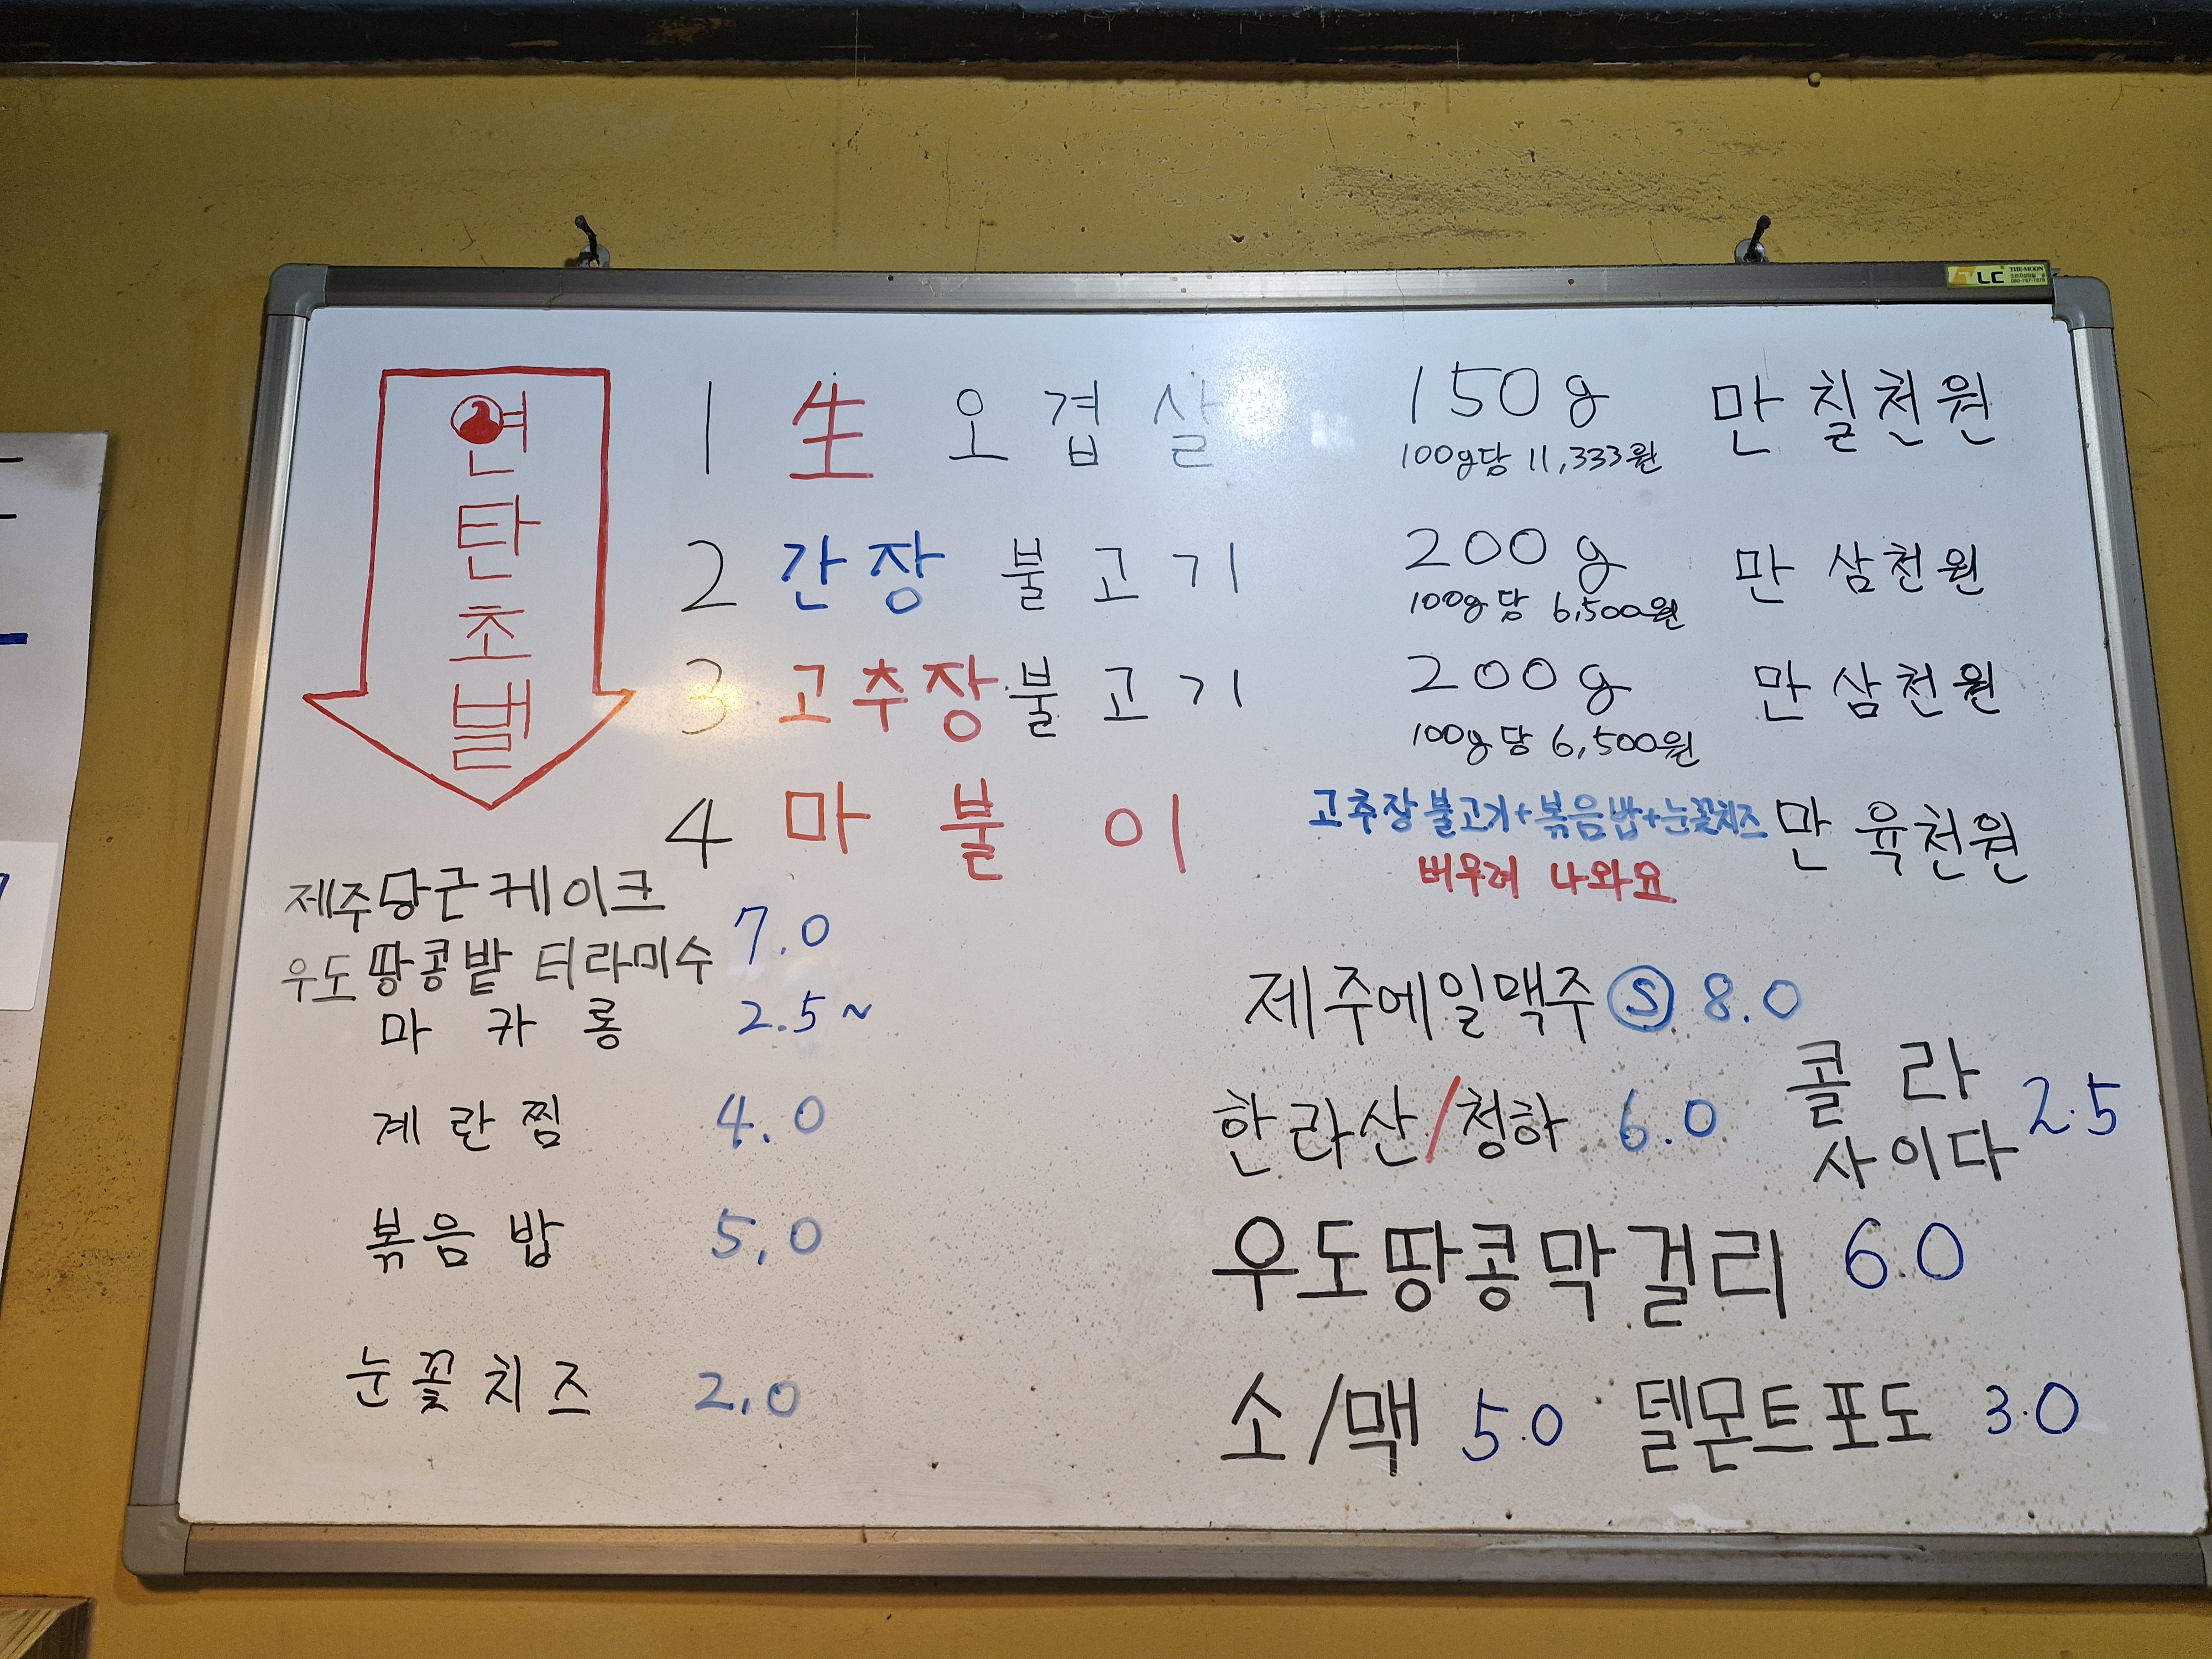 연탄초벌
1 生 오겹살 150g 만칠천원
100g당 11,333원
2 간장 불고기 200g 만삼천원
100g당 6,500원
3 고추장불고기 200g 만삼천원
100g당 6,500원
4 마불이 고추장불고기+볶음밥+눈꽃치즈 만육천원
버무려 나와요
제주당근케이크
우도땅콩밭 티라미수 7.0
마카롱 2.5~
계란찜 4.0
볶음밥 5,0
눈꽃치즈 2,0
제주에일맥주 Ⓢ 8.0
한라산/청하 6.0
콜라
사이다 2.5
우도땅콩막걸리 6.0
소/맥 5.0
델몬트포도 3.0
LC
THE-MOON